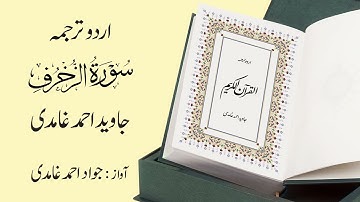 اردو ترجمہ
سورۃ الزخرف
جاوید احمد غامدی
آواز : جواد احمد غامدی
اردو ترجمہ
القرآن الکریم
جاوید احمد غامدی